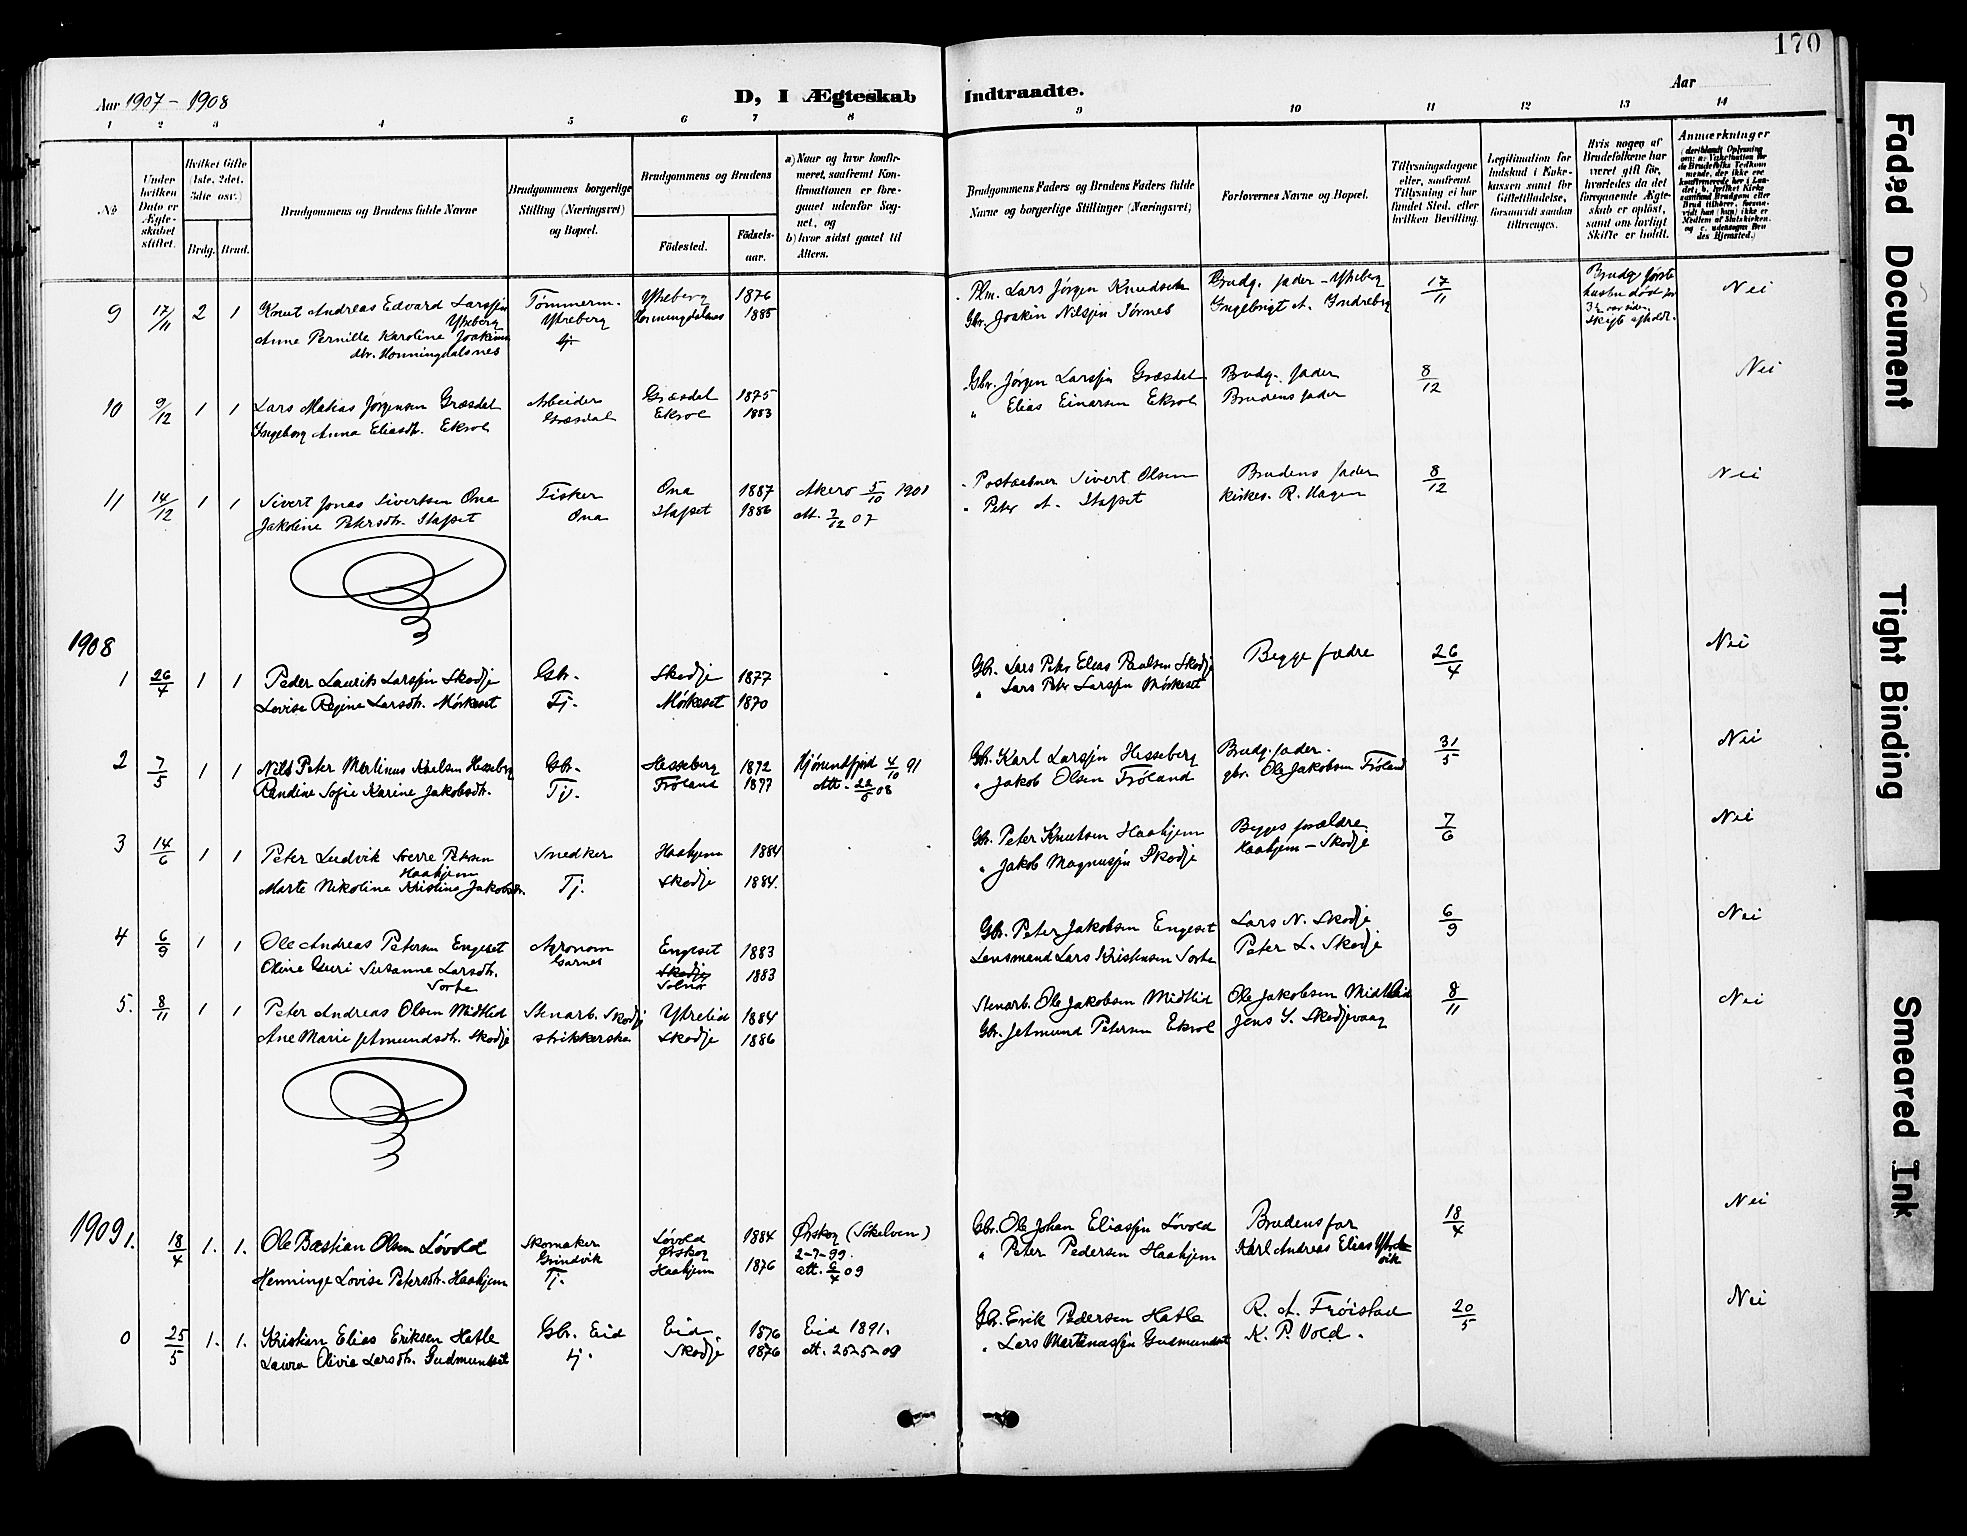 170
Aar 1907 - 1908
D, I Ægteskab Indtraadte.
Aar
1 2 3 4 5 6 7 8 9 10 11 12 13 14
No
Under hvilken Dato er Ægteskabet stiftet.
Hvilket Gifte (1ste, 2det, 3die osv.)
Brdg. Brud.
Brudgommens og Brudens fulde Navne
Brudgommens borgerlige Stilling (Næringsvei) og Bopæl.
Brudgommens og Brudens
Födested.
Födselsaar.
a) Naar og hvor konfirmeret, saafremt Konfirmationen er foregaaet udenfor Sognet, og
b) hvor sidst gaaet til Alters.
Brudgommens Faders og Brudens Faders fulde Navne og borgerlige Stillinger (Næringsvei)
Forlovernes Navne og Bopæl.
Tillysningsdagene eller, saafremt Tillysning ei har fundet Sted, efter hvilken Bevilling.
Legitimation for Indskud i Enkekassen samt for Giftetilladelse, forsaavidt saadan tiltrænges.
Hvis nogen af Brudefolkene har været gift før, hvorledes da det foregaaende Ægteskab er opløst, samt om lovligt Skifte er holdt.
Anmærkninger
9 17/11 2 1 Knut Andreas Edvard Larssøn Ytreberg Tømmerm. Ytreberg Ytreberg 1876 Plm. Lars Jørgen Knudsen Brudg. fader - Ytreberg 17/11 Brudg. første hustru død for 3½ aar siden Skifte afholdt. Nei
Anne Pernille Karoline Joakimsdtr. Honningdalsnes tj. Honningdalsnes 1885 Gbr. Joakim Nilssøn Ingebrigt A. Indreberg
10 9/12 1 1 Lars Matias Jørgensen Græsdal Arbeider Græsdal Græsdal 1875 Gbr. Jørgen Larssøn Græsdal Brudg. fader 8/12 Nei
Ingeborg Anna Eliasdtr. Ekrol Ekrol 1883 " Elias Einarsen Ekrol Brudens fader
11 14/12 1 1 Sivert Jonas Sivertsen Ona Fisker Ona Ona 1887 Akerø 5/10 1901 Postaabner Sivert Olsen Brudens fader 8/12 Nei
Jakoline Petersdtr. Stafset Stafset 1886 att. 7/12 07 " Peter A. Stafset Kirkes. R. Hagen
1908
1 26/4 1 1 Peder Laurits Larssøn Skodje Gbr. Skodje 1877 Gbr. Lars Peter Elias Paulsen Skodje Begge fædre 26/4 Nei
Lovise Regine Larsdtr. Mørkeset Tj. Mørkeset 1870 " Lars Peter Larssøn Mørkeset
2 7/5 1 1 Nils Peter Martinus Karlsen Hesseberg Gbr. Hesseberg 1872 Hjørundfjord 4/10 91 Gbr. Karl Larssøn Hesseberg Brudg. fader. 31/5 Nei
Randine Sofie Karine Jakobsdtr. Tj. Frøland 1877 Att. 08 " Jakob Olsen Frøland gbr. Ole Jakobsen Frøland
3 14/6 1 1 Peter Ludvik Sverre Petersen Haahjem Snedker Haahjem 1884 Gbr. Peter Knutsen Haahjem Begges forældre. 7/6 Nei
Marte Nikoline Kristine Jakobsdtr. Tj. Skodje 1884. " Jakob Magnussøn Skodje Haahjem - Skodje
4 6/9 1 1 Ole Andreas Petersen Engeset Agronom Garnes Engeset 1883 Gbr. Peter Jakobsen Engeset Lars N. Skodje 6/9 Nei
Oline Guri Susanne Larsdtr. Sorte Skodje Solnør 1883 Lensmand Lars Kristensen Sorte Peter L. Skodje
5. 8/11 1 1 Peter Andreas Olsen Midtlid Stenarb. Skodje Ytrelid 1884 Stenarb. Ole Jakobsen Midtlid Ole Jakobsen Midtlid 8/11 Nei
Ane Marie Jetmundsdtr. Skodje strikkerske Skodje 1886 Gbr. Jetmund Petersen Ekrol Jens S. Skodjevaag
1909
1. 18/4 1. 1. Ole Bastian Olsen Løvold Skomaker Grindvik Løvold Ørskog 1884 Ørskog (Sokelven) 2-7-99. Gbr. Ole Johan Eliassøn Løvold Brudens far 18/4 Nei
Henninge Lovise Petersdtr. Haahjem Tj. Haahjem 1876 att. 6/4 09 " Peter Pedersen Haahjem Karl Andreas Elias
0 25/5 1. 1. Kristian Elias Eriksen Hatle Gbr. Eid Eid 1876 Eid 1891. Gbr. Erik Pedersen Hatle R. A. Frøistad 20/5 Nei
Laura Olivia Larsdtr. Gudmundset tj. Skodje 1876 att. 25-5-09 " Lars Martinussøn Gudmundset K. P. Vold.
Faded Document
Tight Binding
Smeared Ink